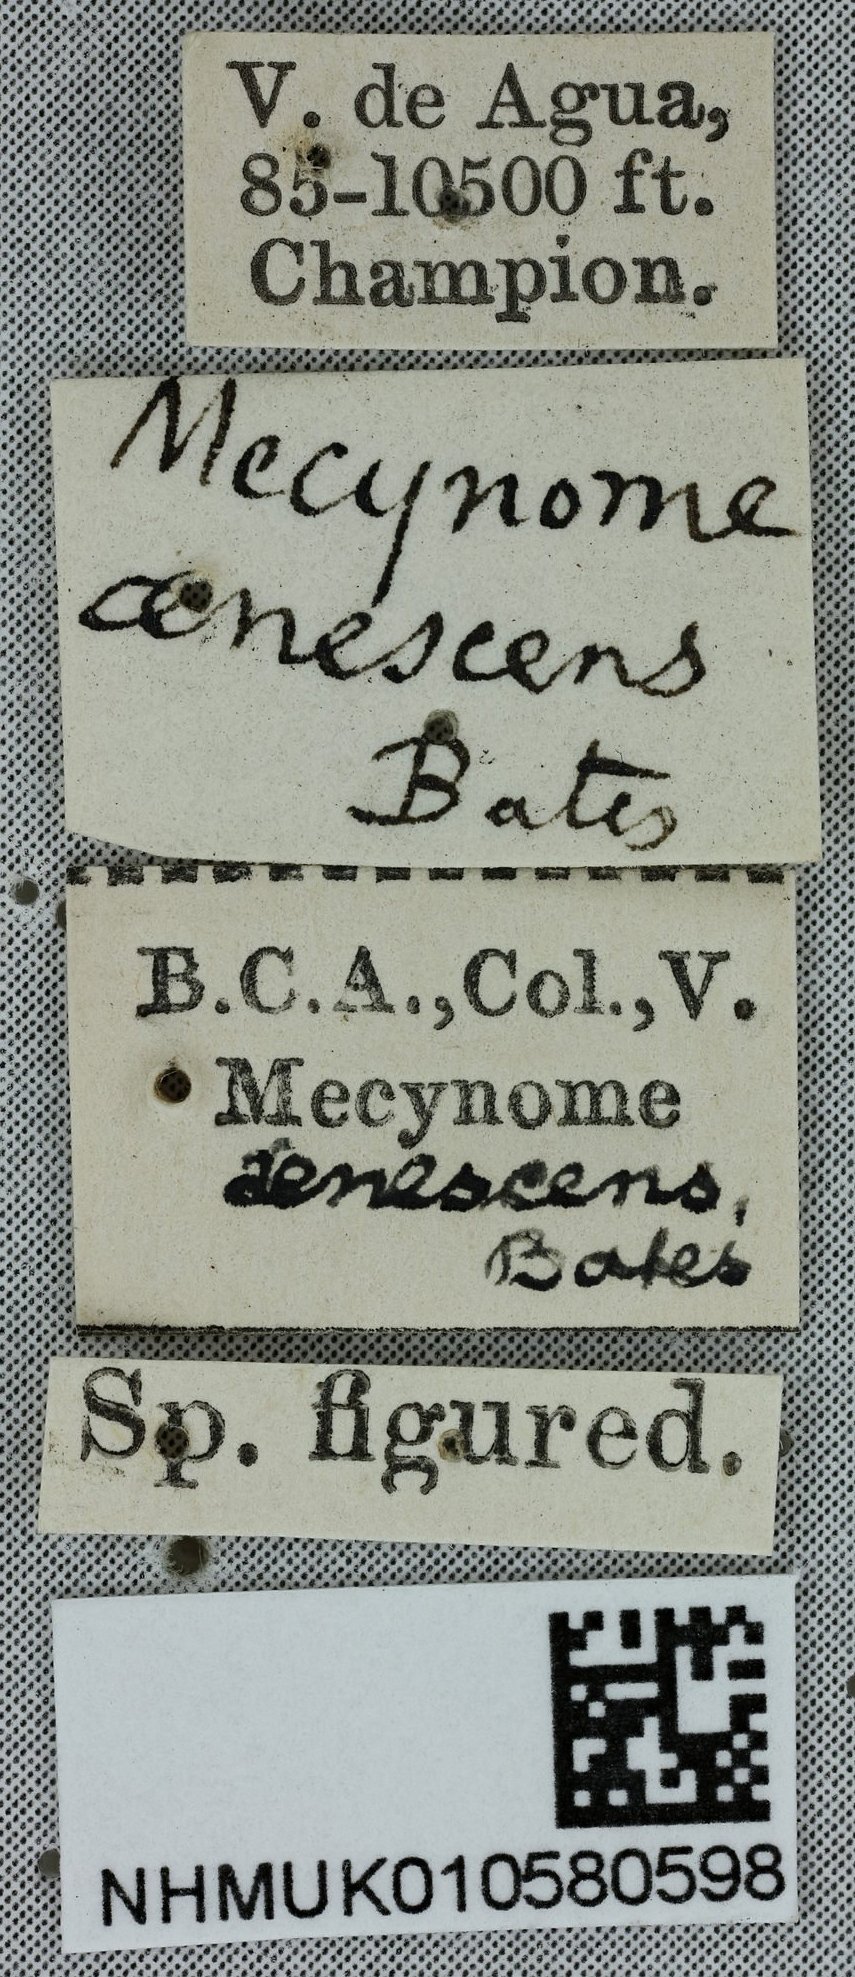 V. de Agua,
85-10500 ft.
Champion.
Mecynome
ænescens
Bates
B.C.A.,Col.,V.
Mecynome
aenescens,
Bates
Sp. figured.
NHMUK010580598